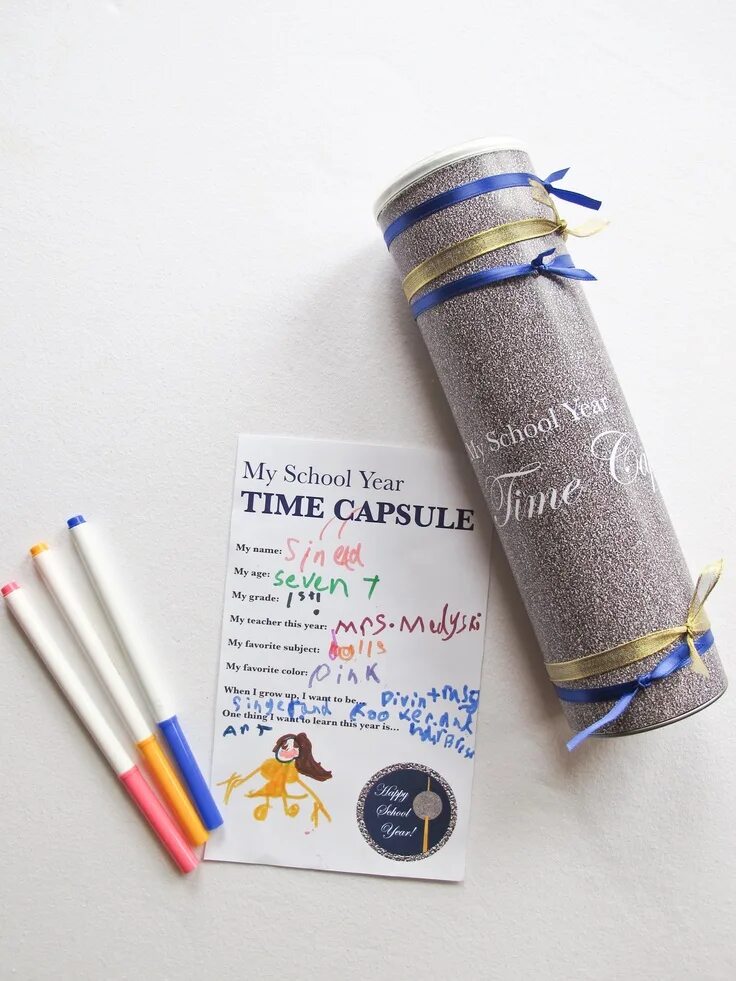 My School Year
Time Cap
My School Year
TIME CAPSULE
My name: Sinead
My age: seven 7
My grade: 1st!
My teacher this year: Mrs. Mulyski
My favorite subject:
My favorite color: pink
When I grow up, I want to be...
Singer and
One thing I want to learn this year is...
Art
Happy
School
Year!